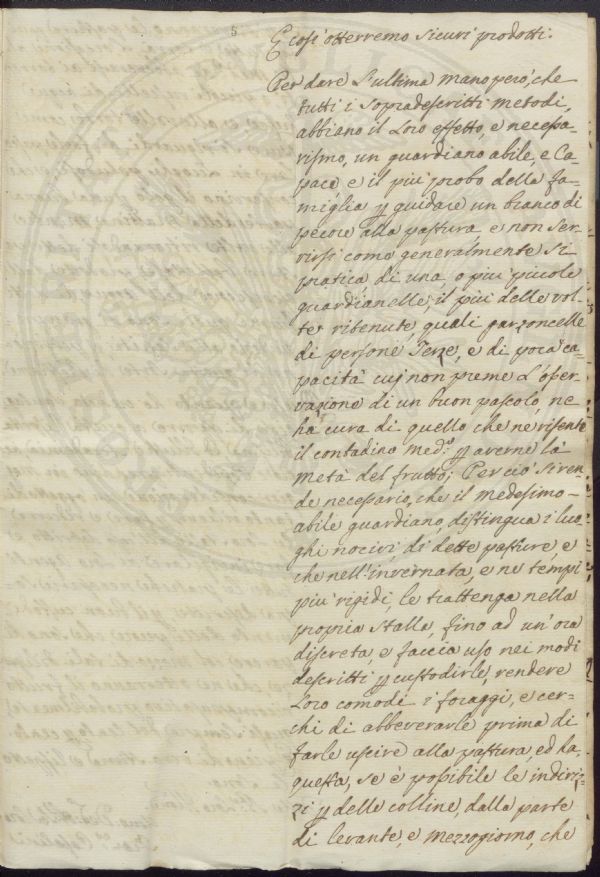 5
E così otterremo sicuri prodotti.
Per dare l'ultima mano però, che
tutti i sopradescritti metodi,
abbiano il loro effetto, e necessa-
rissmo, un guardiano abile, e Ca-
pace e il più probo della fa-
miglia p guidare un branco di
pecore alla pastura e non ser-
virsi come generalmente si
pratica di una, o più piccole
guardianelle, il più delle vol-
te ritenute, quali garzoncelle
di persone Terze, e di poca ca-
pacità cuj non preme l'osser-
vazione di un buon pascolo, ne
ha cura di quello che ne risente
il contadino med.o p averne la
metà del frutto; Per ciò si ren-
de necessario, che il medesimo
abile guardiano, distingua i luo-
ghi nocivi, di dette pasture, e
che nell'invernata, e ne tempi
più rigidi, le trattenga nella
propria stalla, fino ad un'ora
discreta, e faccia uso nei modi
descritti p custodirle, rendere
loro comodi i foraggi, e cer-
chi di abbeverarle prima di
farle uscire alla pastura, ed ha,
questa, se è possibile le indiriz-
zi p delle colline, dalla parte
di levante, e mezzogiorno, che